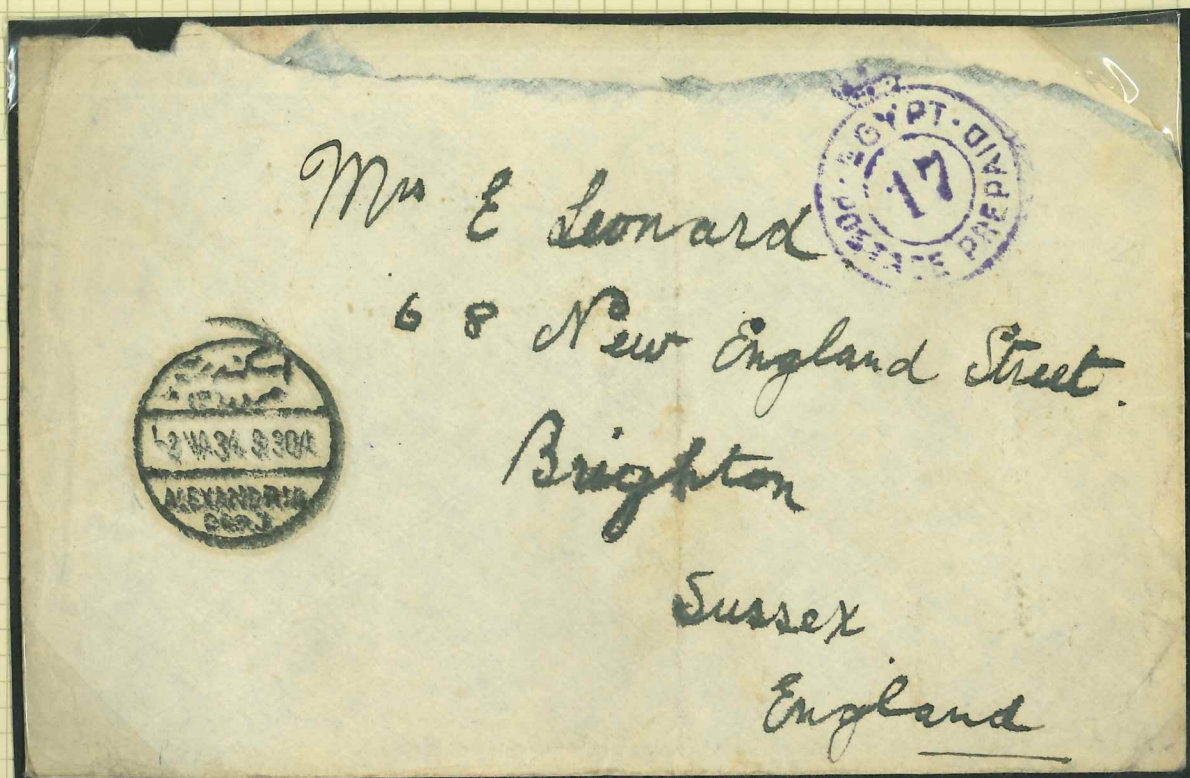 EGYPT · POSTAGE PREPAID ·
17
Mrs E Leonard
68 New England Street.
Brighton
Sussex
England
اسكندرية
34 9 30 A
ALEXANDRIA